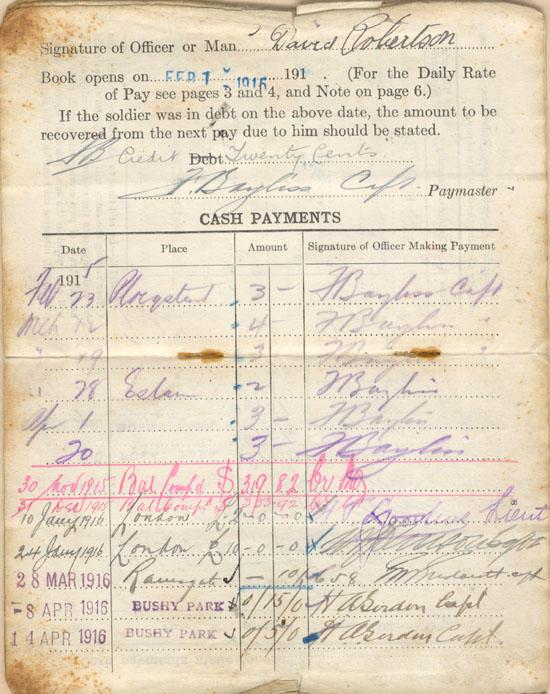 Signature of Officer or Man David Robertson
Book opens on FEB 7 1915 191 . (For the Daily Rate
of Pay see pages 3 and 4, and Note on page 6.)
If the soldier was in debt on the above date, the amount to be
recovered from the next pay due to him should be stated.
Credit Debt Twenty Cents.
F. Bayliss Capt. Paymaster
CASH PAYMENTS
Date Place Amount Signature of Officer Making Payment
1915
Feb 23 Ploegstert 3 - F Bayliss Capt
Mch 12 4 - F Bayliss "
" 19 3 Bayliss "
" 28 2 F Bayliss
Apr 1 3 - F Bayliss
20 3 - F Bayliss
30 Nov 1915 Bal Comp'd $ 39 82
31 Dec 1915 Bal Comp'd $
10 Jany 1916 London £ - 0 - 0 Lieut
24 Jany 1916 London £10 - 0 - 0
28 MAR 1916 Ramsgate - 10/ Capt
-8 APR 1916 BUSHY PARK 0/15/0 H A Gordon Capt
14 APR 1916 BUSHY PARK 0/5/0 H A Gordon Capt.